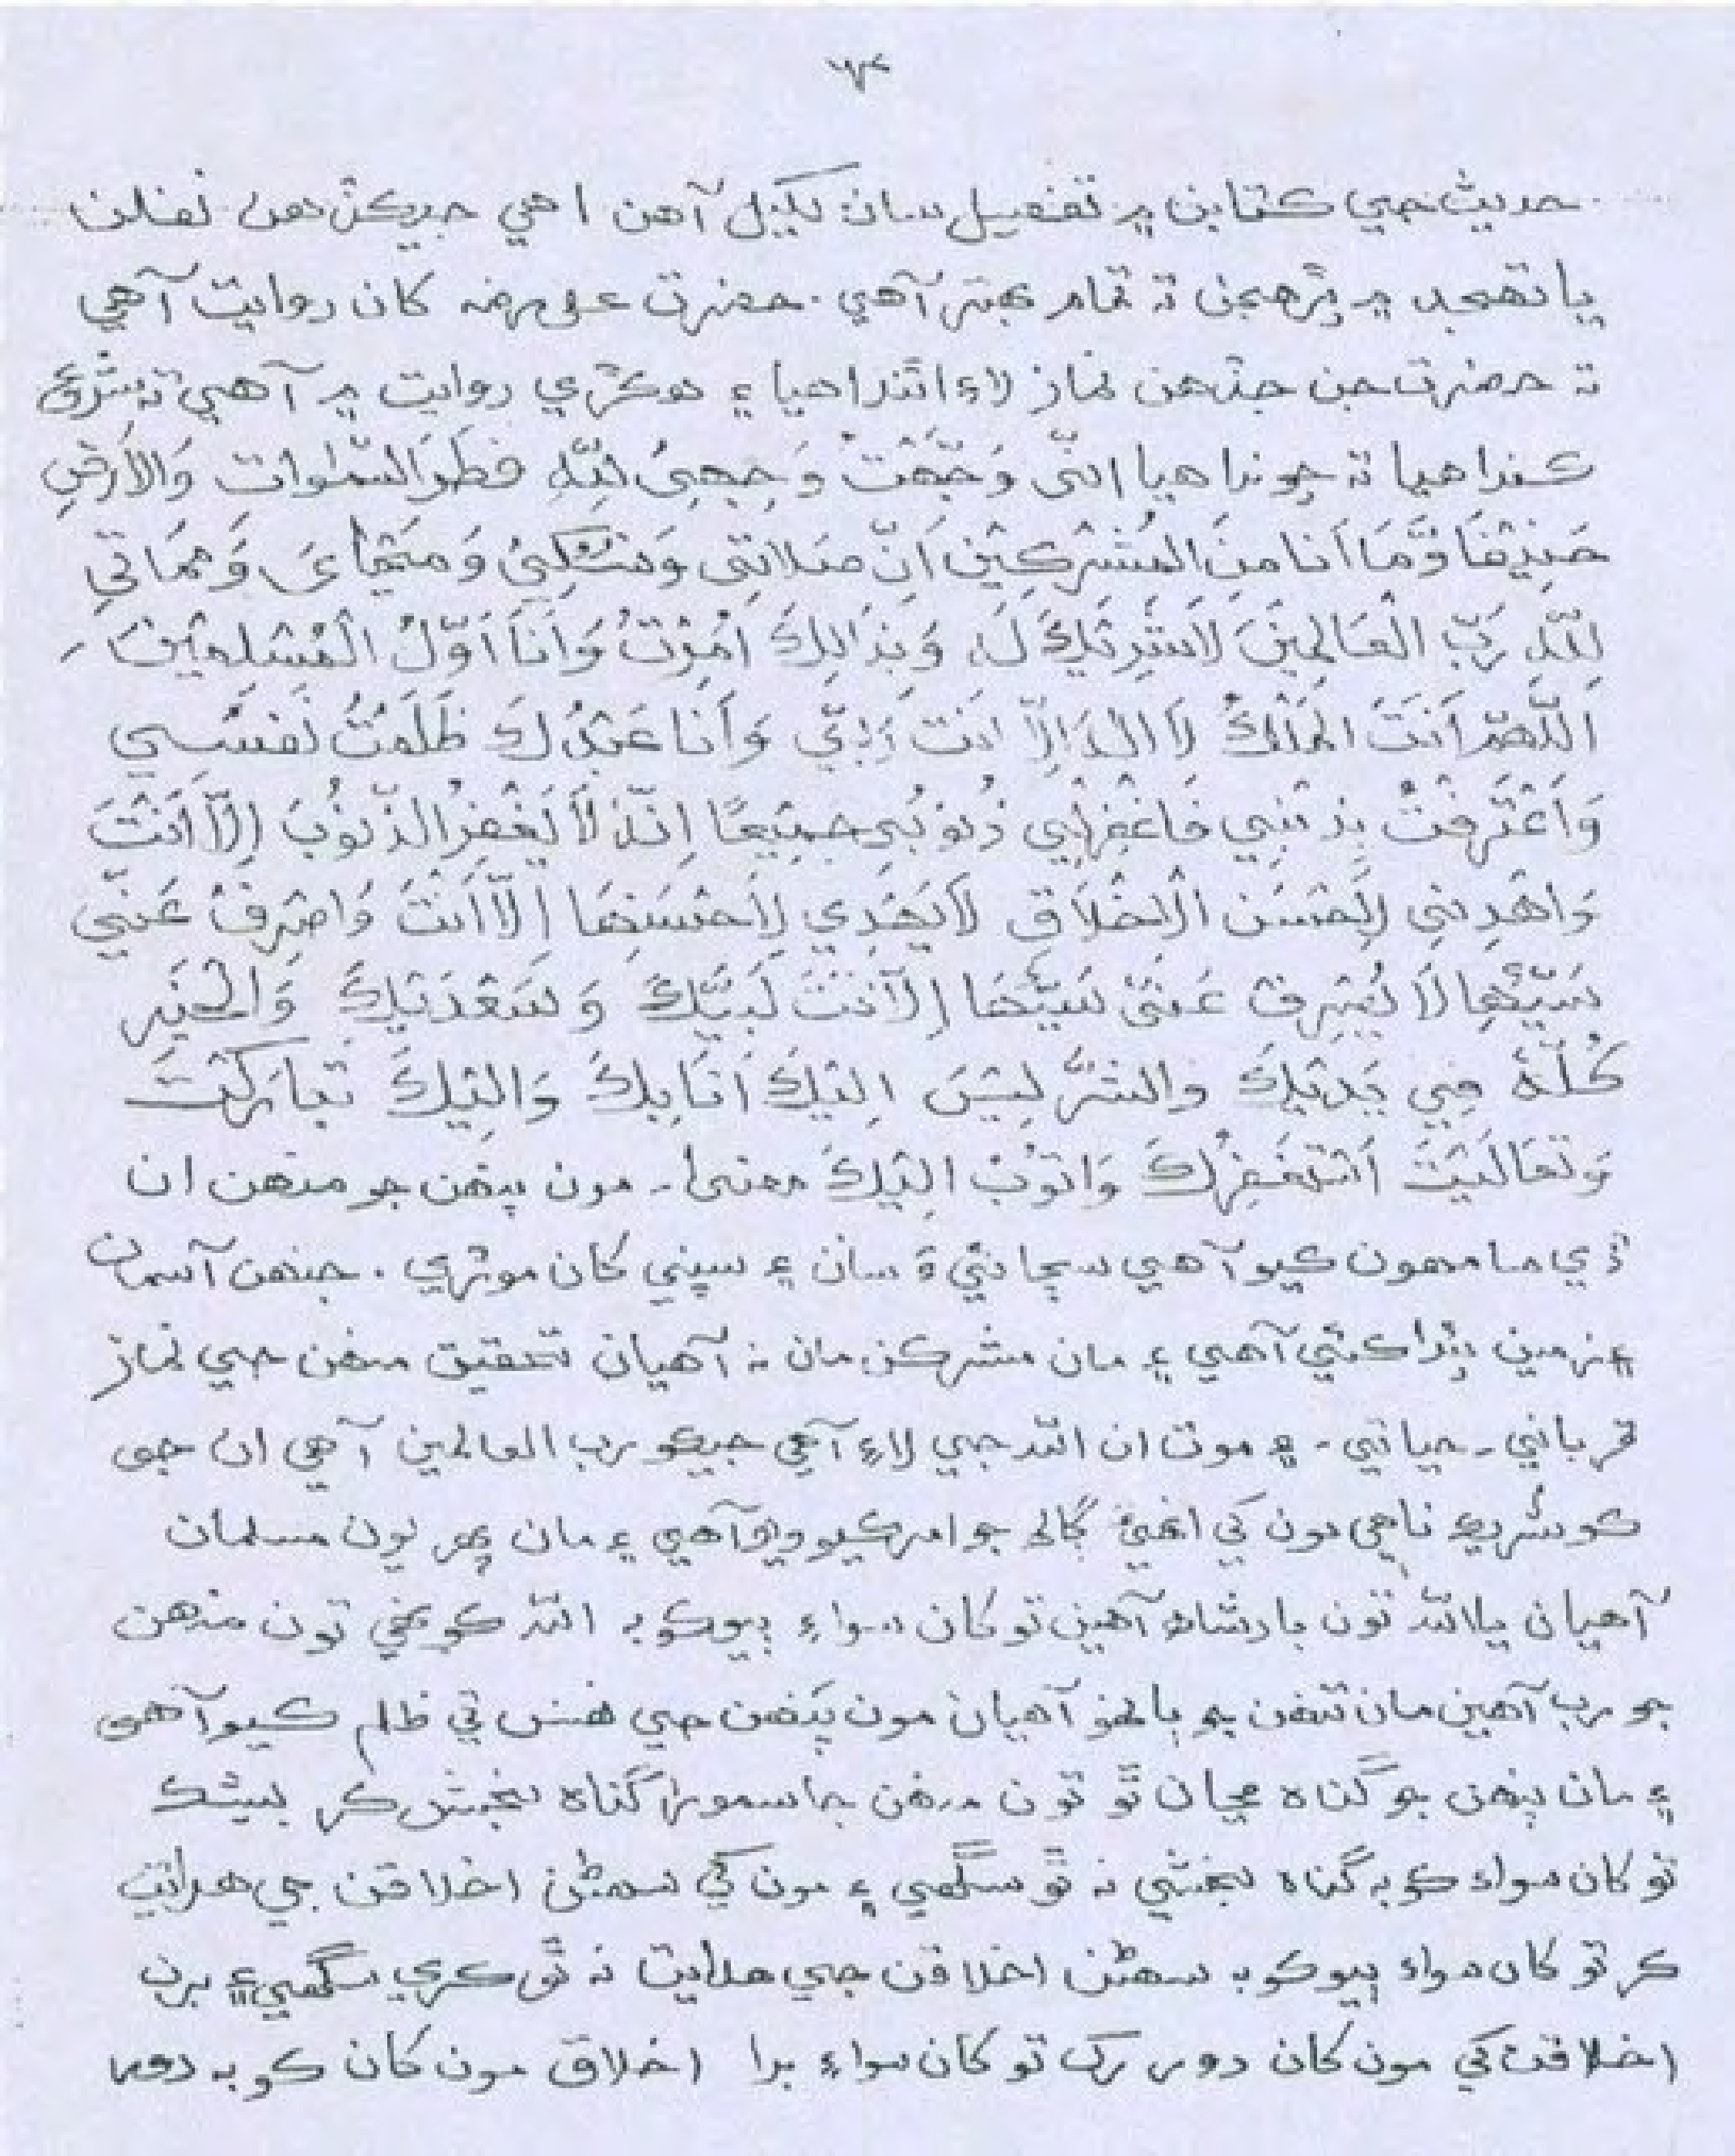 حديث جي ڪتابن ۾ تفصيل سان لکيل آهن اهي جيڪڏهن نفلن
يا تهجد ۾ پڙهجن ته تمام بهتر آهي. حضرت علي رضه کان روايت آهي
ته حضرت جن جڏهن نماز لاءِ اٿندا هيا ۽ هڪڙي روايت ۾ آهي ته شروع
ڪندا هيا ته چوندا هيا اِنّي وَجَّهْتُ وَجْهِيَ لِلّٰهِ فَطَرَ السَّمٰوات وَالأَرْضِ
حَنِيْفًا وَّمَا اَنا مِنَ المُشْرِكِيْن اِنّ صَلاتِي وَنُسُكِيْ وَ مَحْيَايَ وَ مَمَاتِي
لِلّٰهِ رَبِّ الْعَالَمِيْنَ لَا شَرِيْكَ لَهٗ وَبِذَالِكَ اُمِرْتُ وَاَنَا اَوّلُ الْمُسْلِمِيْنَ -
اَللّٰهُمّ اَنْتَ المَلِكُ لَا اِلٰهَ اِلّا اَنْتَ رَبِّي وَ اَنَا عَبْدُكَ ظَلَمْتُ نَفْسِي
وَاعْتَرَفْتُ بِذَنْبِي فَاغْفِرْلِي ذُنُوبِي جَمِيْعًا اِنّهٗ لَا يَغْفِرُ الذّنُوْبَ اِلّا اَنْتَ
وَاهْدِنِي لِاَحْسَنِ الْاَخْلَاقِ لَا يَهْدِي لِاَحْسَنِهَا اِلّا اَنْتَ وَاصْرِفْ عَنّي
سَيّئَهَا لَا يُصْرِفُ عَنّي سَيّئَهَا اِلّا اَنْتَ لَبَّيْكَ وَ سَعْدَيْكَ وَالْخَيْر
كُلّهٗ فِي يَدَيْكَ وَالشّرُّ لَيْسَ اِلَيْكَ اَنَا بِكَ وَاِلَيْكَ تَبَارَكْتَ
وَتَعَالَيْتَ اَسْتَغْفِرُكَ وَاَتُوْبُ اِلَيْكَ معنيٰ - مون پنهن جو منهن ان
ڏي سامهون ڪيو آهي سچائيءَ سان ۽ سڀني کان موٽري. جنهن آسمان
۽ زمين پيدا ڪئي آهي ۽ مان مشرڪن مان نه آهيان تحقيق منهن جي نماز
قرباني - حياتي - ۽ موت ان الله جي لاءِ آهي جيڪو رب العالمين آهي ان جو
ڪو شريڪ ناهي مون کي اهڙيءَ ڳالهه جو امر ڪيو ويو آهي ۽ مان پهريون مسلمان
آهيان يا الله تون بادشاهه آهين تو کان سواءِ ٻيو ڪو به الله ڪونهي تون منهن
جو رب آهين مان تنهن جو ٻانهو آهيان مون پنهن جي نفس تي ظلم ڪيو آهي
۽ مان پنهن جو گناه مڃان ٿو تون منهن جا سمورا گناه بخشش ڪر بيشڪ
تو کان سواءِ ڪو به گناه بخشي نه ٿو سگهي ۽ مون کي سهڻن اخلاقن جي هدايت
ڪر تو کان سواءِ ٻيو ڪو به سهڻن اخلاقن جي هدايت نه ٿو ڪري سگهي ۽ برن
اخلاقن کي مون کان دور رک تو کان سواءِ برا اخلاق مون کان ڪو به دور